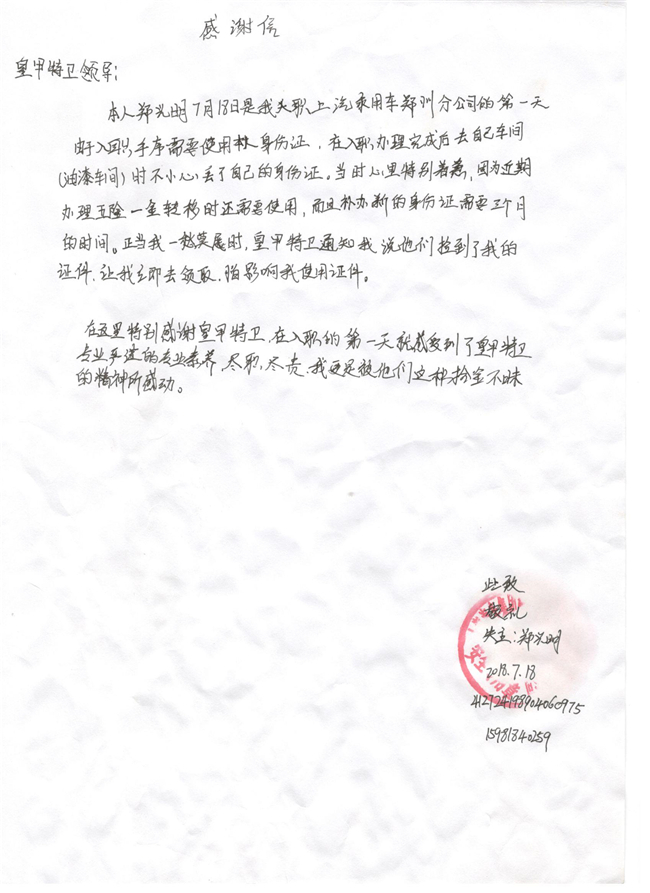 感谢信
皇甲特卫领导:
本人郑兴明7月18日是我入职上汽乘用车郑州分公司的第一天
由于入职手序需要使用 身份证,在入职办理完成后去自己车间
(油漆车间)时不小心丢了自己的身份证。当时心里特别着急,因为近期
办理五险一金转移时还需要使用,而且补办新的身份证需要三个月
的时间。正当我一愁莫展时,皇甲特卫通知我说他们捡到了我的
证件,让我立即去领取,怕影响我使用证件。
在这里特别感谢皇甲特卫,在入职的第一天就感受到了皇甲特卫
专业 的专业素养,尽职,尽责,我更是被他们这种拾金不昧
的精神所感动。
此致
敬礼
失主:郑兴明
2018.7.18
412724198904060975
15981840259
安全